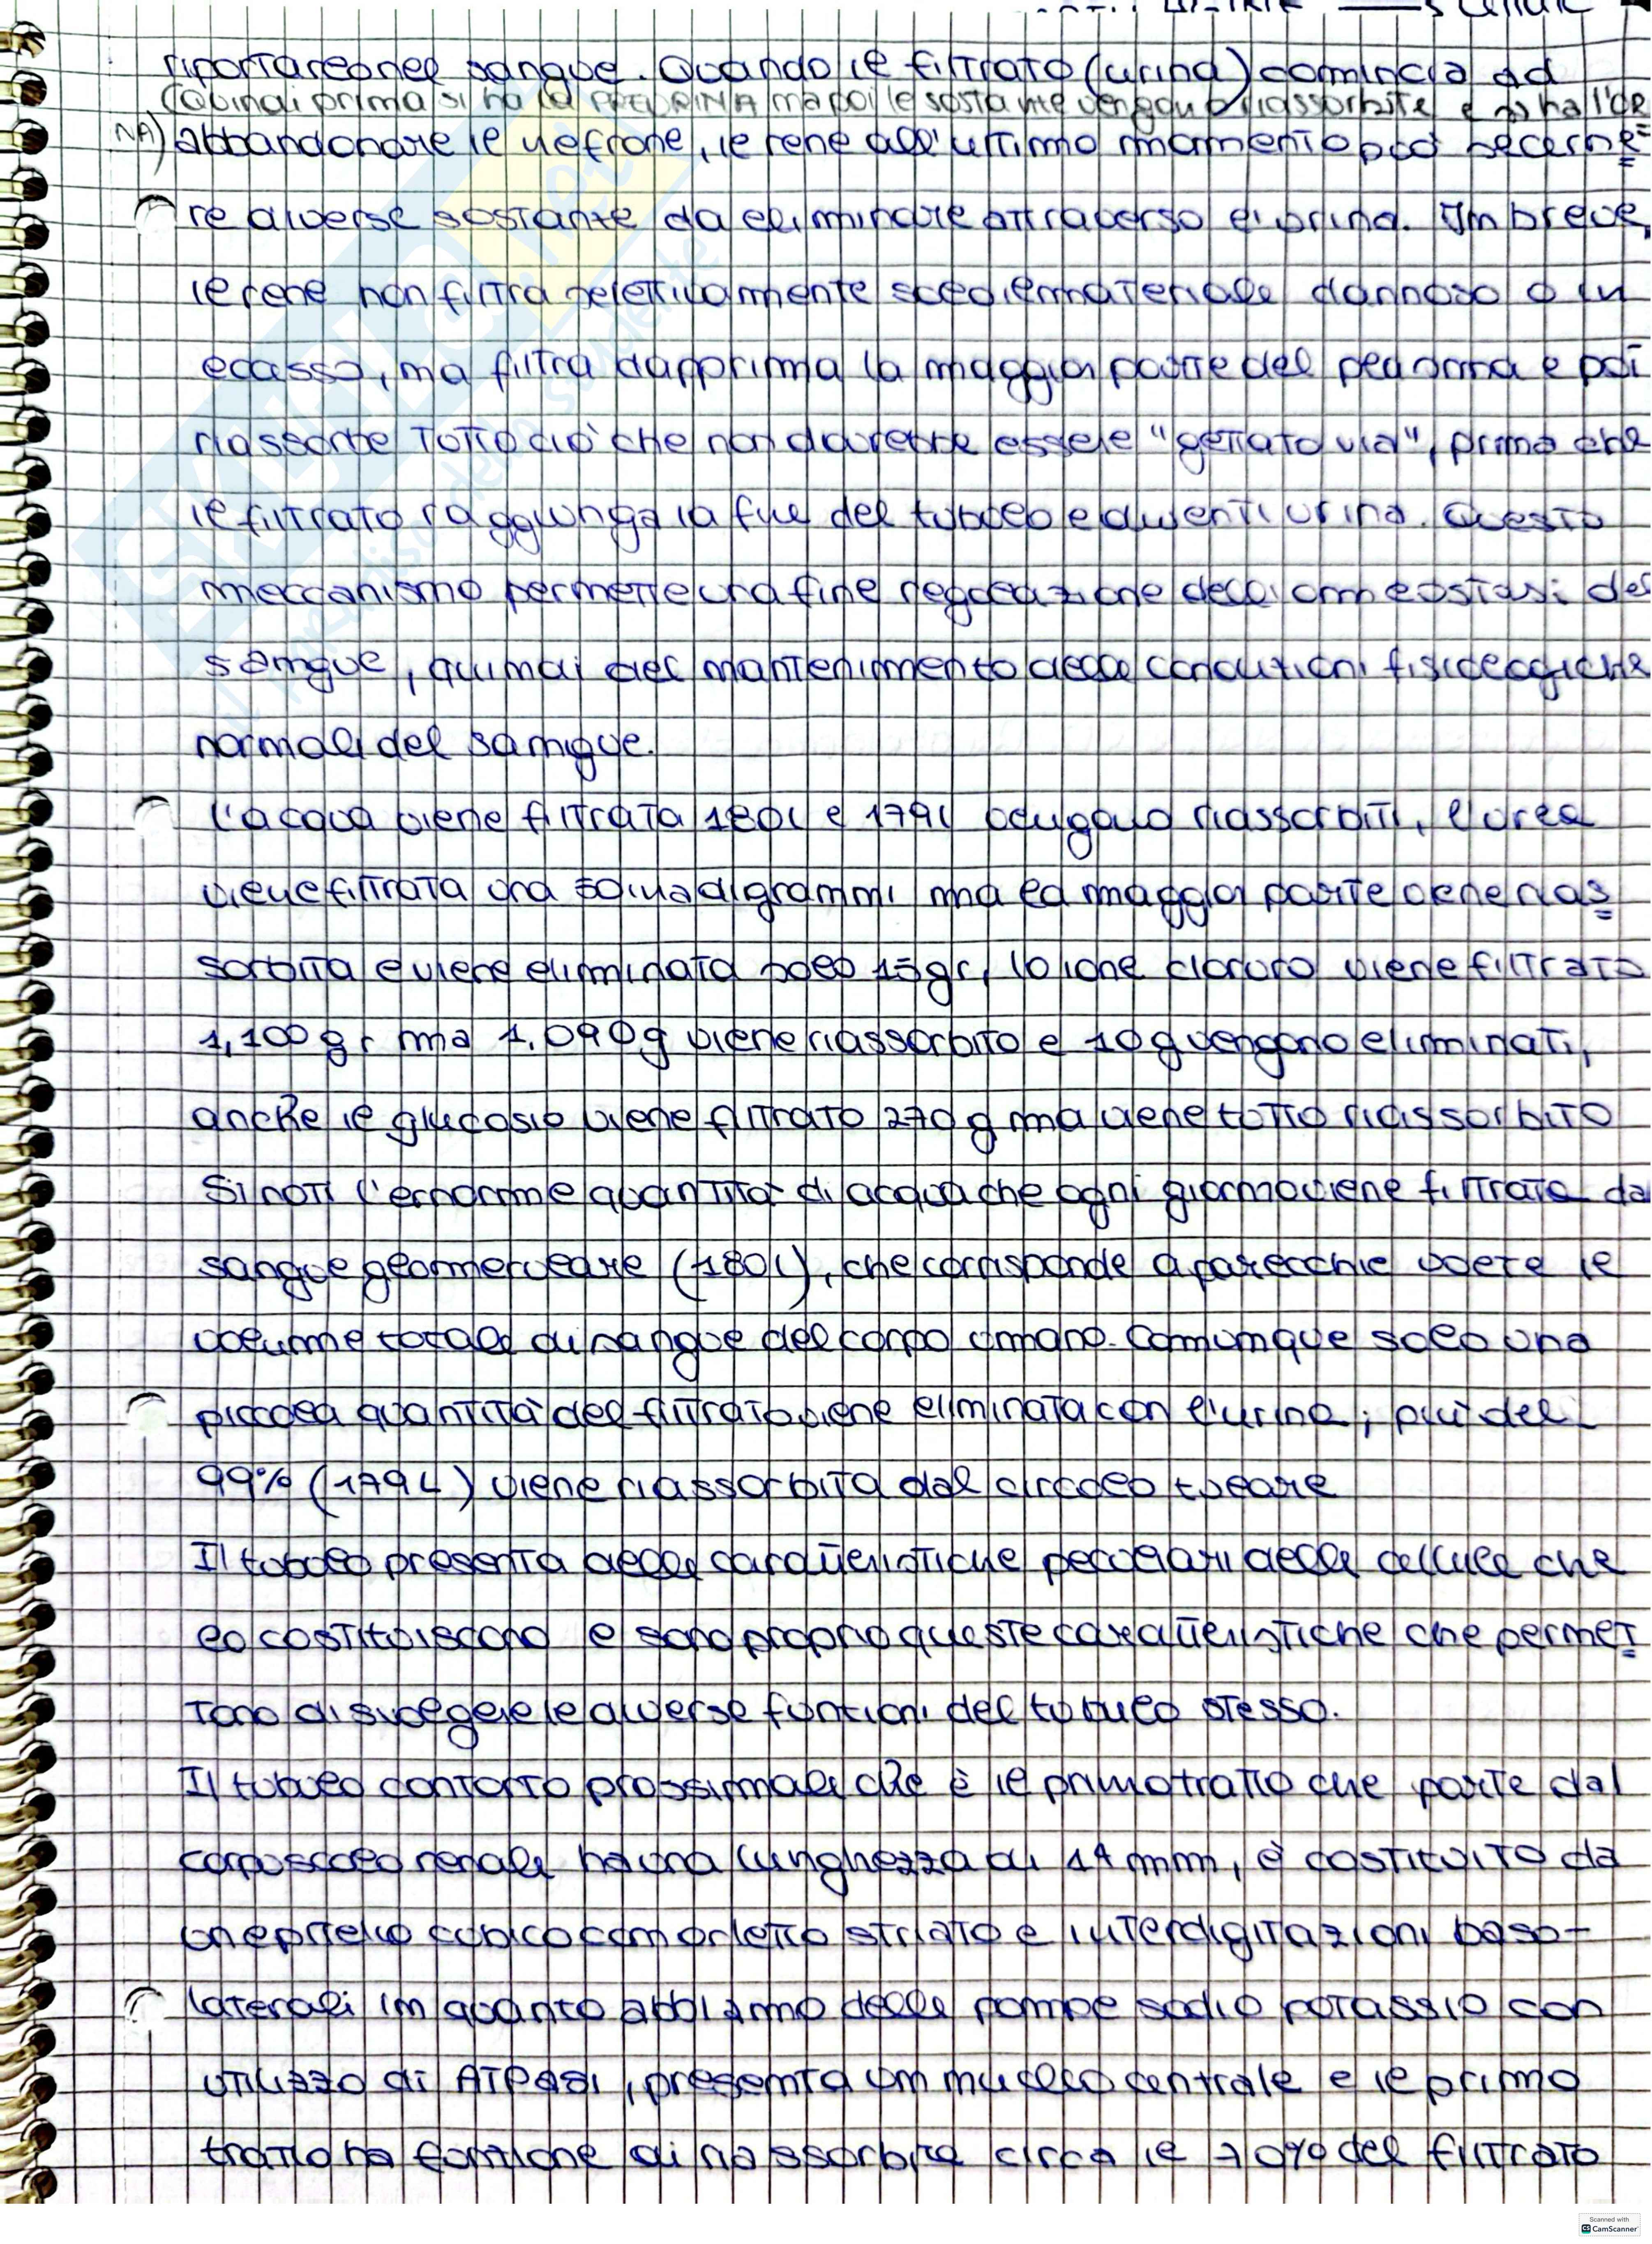 riportareo nel sangue. Quando il filtrato (urina) comincia ad
(Quindi prima si ha la PREURINA ma poi le sostante vengono riassorbite e si ha l'URI
NA) abbandonare il nefrone, il rene all'ultimo momento può secerne
re diverse sostante da eliminare attraverso l'urina. In breve,
il rene non filtra selettivamente solo il materiale dannoso o in
eccesso, ma filtra dapprima la maggior parte del plasma e poi
riassorbe tutto ciò che non dovrebbe essere "gettato via", prima che
il filtrato raggiunga la fine del tubulo e diventi urina. Questo
meccanismo permette una fine regolazione dell'omeostasi del
sangue, quindi del mantenimento delle condizioni fisiologiche
normali del sangue.
L'acqua viene filtrata 180L e 179L vengono riassorbiti, l'urea
viene filtrata una di grammi ma la maggior parte viene rias
sorbita e viene eliminata solo 15gr, lo ione cloruro viene filtrato
1,100 gr ma 1.090g viene riassorbito e 10g vengono eliminati,
anche il glucosio viene filtrato 270 g ma viene tutto riassorbito
Si noti l'enorme quantità di acqua che ogni giorno viene filtrata da
sangue glomerulare (180L), che corrisponde a parecchie volte il
volume totale di sangue del corpo umano. Comunque solo una
piccola quantità del filtrato viene eliminata con l'urina; più del
99% (179L) viene riassorbita dal circolo
Il tubulo presenta delle caratteristiche peculiari delle cellule che
lo costituiscono e sono proprio queste caratteristiche che permet
tono di svolgere le diverse funzioni del tubulo stesso.
Il tubulo contorto prossimale che è il primo tratto che parte dal
corpuscolo renale ha una lunghezza di 14 mm, è costituito da
un epitelio cubico con orletto striato e interdigitazioni baso-
laterali in quanto abbiamo delle pompe sodio potassio con
utilizzo di ATPasi, presenta un nucleo centrale e il primo
tratto ha funzione di riassorbire circa il 70% del filtrato
Scanned with
CS CamScanner
SKUOLA.net
il paradiso dello studente